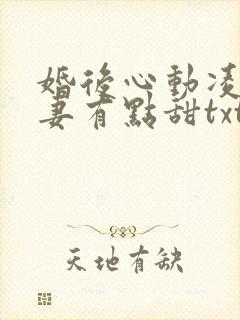 婚後心動凌
妻有點甜txt
天地有缺